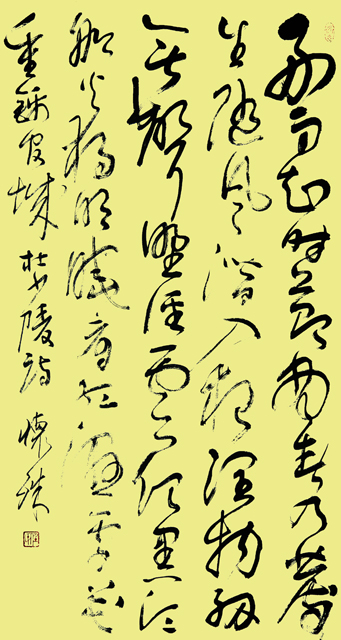 好雨知時節當春乃發
生隨風潛入夜潤物細
無聲野徑雲俱黑江
船火獨明曉看紅濕處花
重錦官城 杜少陵詩 懷